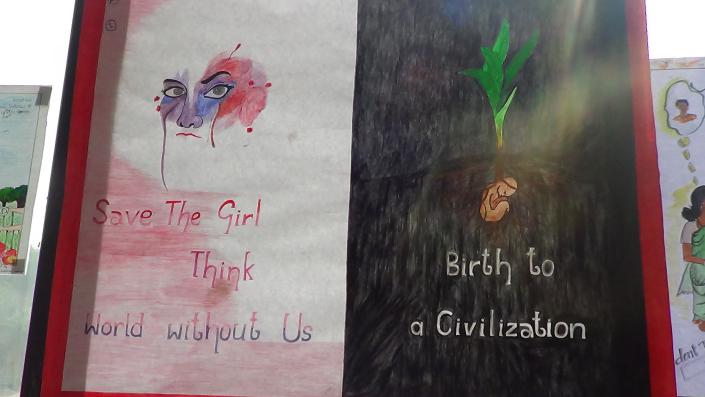 Save The Girl
Think
World without Us
Birth to
a Civilization